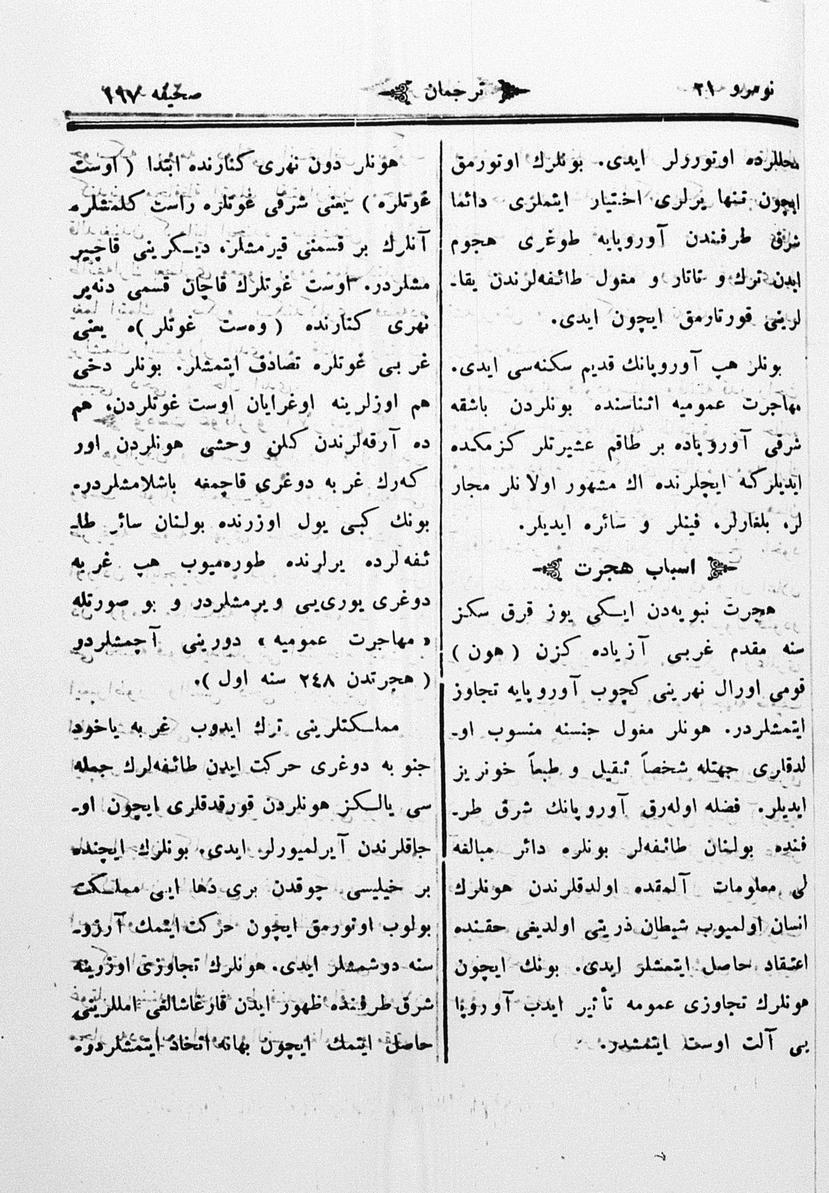 نومرو ٢١
ترجمان
صحیفه ٢٩٧
محللرده اوتورورلر ایدی. بونلرك اوتورمق
ایچون تنها یرلری اختیار ایتملری دائما
شرق طرفندن آوروپایه طوغری هجوم
ایدن ترك و تاتار و مغول طائفه‌لرندن یقا‍ـ
لرینی قورتارمق ایچون ایدی.
بونلر هپ آوروپانك قدیم سکنه‌سی ایدی.
مهاجرت عمومیه اثناسنده بونلردن باشقه
شرقی آوروپاده بر طاقم عشیرتلر کزمکده
ایدیلرکه ایچلرنده اك مشهور اولانلر مجار
لر، بلغارلر، فینلر و سائره ایدیلر.
اسباب هجرت
هجرت نبویه‌دن ایکی یوز قرق سکز
سنه مقدم غربی آزیاده کزن ( هون )
قومی اورال نهرینی کچوب آوروپایه تجاوز
ایتمشلردر. هونلر مغول جنسنه منسوب او‍ـ
لدقلری جهتله شخصاً ثقیل و طبعاً خونریز
ایدیلر. فضله اوله‌رق آوروپانك شرق طر‍ـ
فنده بولنان طائفه‌لر بونلره دائر مبالغه
لی معلومات آلمقده اولدقلرندن هونلرك
انسان اولمیوب شیطان ذریتی اولدیغی حقنده
اعتقاد حاصل ایتمشلر ایدی. بونك ایچون
هونلرك تجاوزی عمومه تأثیر ایدب آوروپا
یی آلت اوست ایتمشدر.
هونلر دون نهری کنارنده ابتدا ( اوست
غوتلره ) یعنی شرقی غوتلره راست کلمشلر.
آنلرك بر قسمنی قیرمشلر، دیکرینی قاچیر
مشلردر. اوست غوتلرك قاچان قسمی دنه‌پر
نهری کنارنده ( وه‌ست غوتلر )ه یعنی
غربی غوتلره تصادف ایتمشلر. بونلر دخی
هم اوزلرینه اوغرایان اوست غوتلردن، هم
ده آرقه‌لرندن کلن وحشی هونلردن اور
که‌رك غربه دوغری قاچمغه باشلامشلردر.
بونك کبی یول اوزرنده بولنان سائر طا‍ـ
ئفه‌لرده یرلرنده طوره‌میوب هپ غربه
دوغری یوری‌یی ویرمشلردر و بو صورتله
« مهاجرت عمومیه » دورینی آچمشلردر
( هجرتدن ٢٤٨ سنه اول ).
مملکتلرینی ترك ایدوب غربه یاخود
جنوبه دوغری حرکت ایدن طائفه‌لرك جمله
سی یالکز هونلردن قورقدقلری ایچون او‍ـ
جاقلرندن آیرلمیورلر ایدی. بونلرك ایچنده
بر خیلیسی چوقدن بری دها ایی مملکت
بولوب اوتورمق ایچون حرکت ایتمك آرزو‍ـ
سنه دوشمشلر ایدی. هونلرك تجاوزی اوزرینه
شرق طرفنده ظهور ایدن قارغاشالغی امللرینی
حاصل ایتمك ایچون بهانه اتخاذ ایتمشلردر.